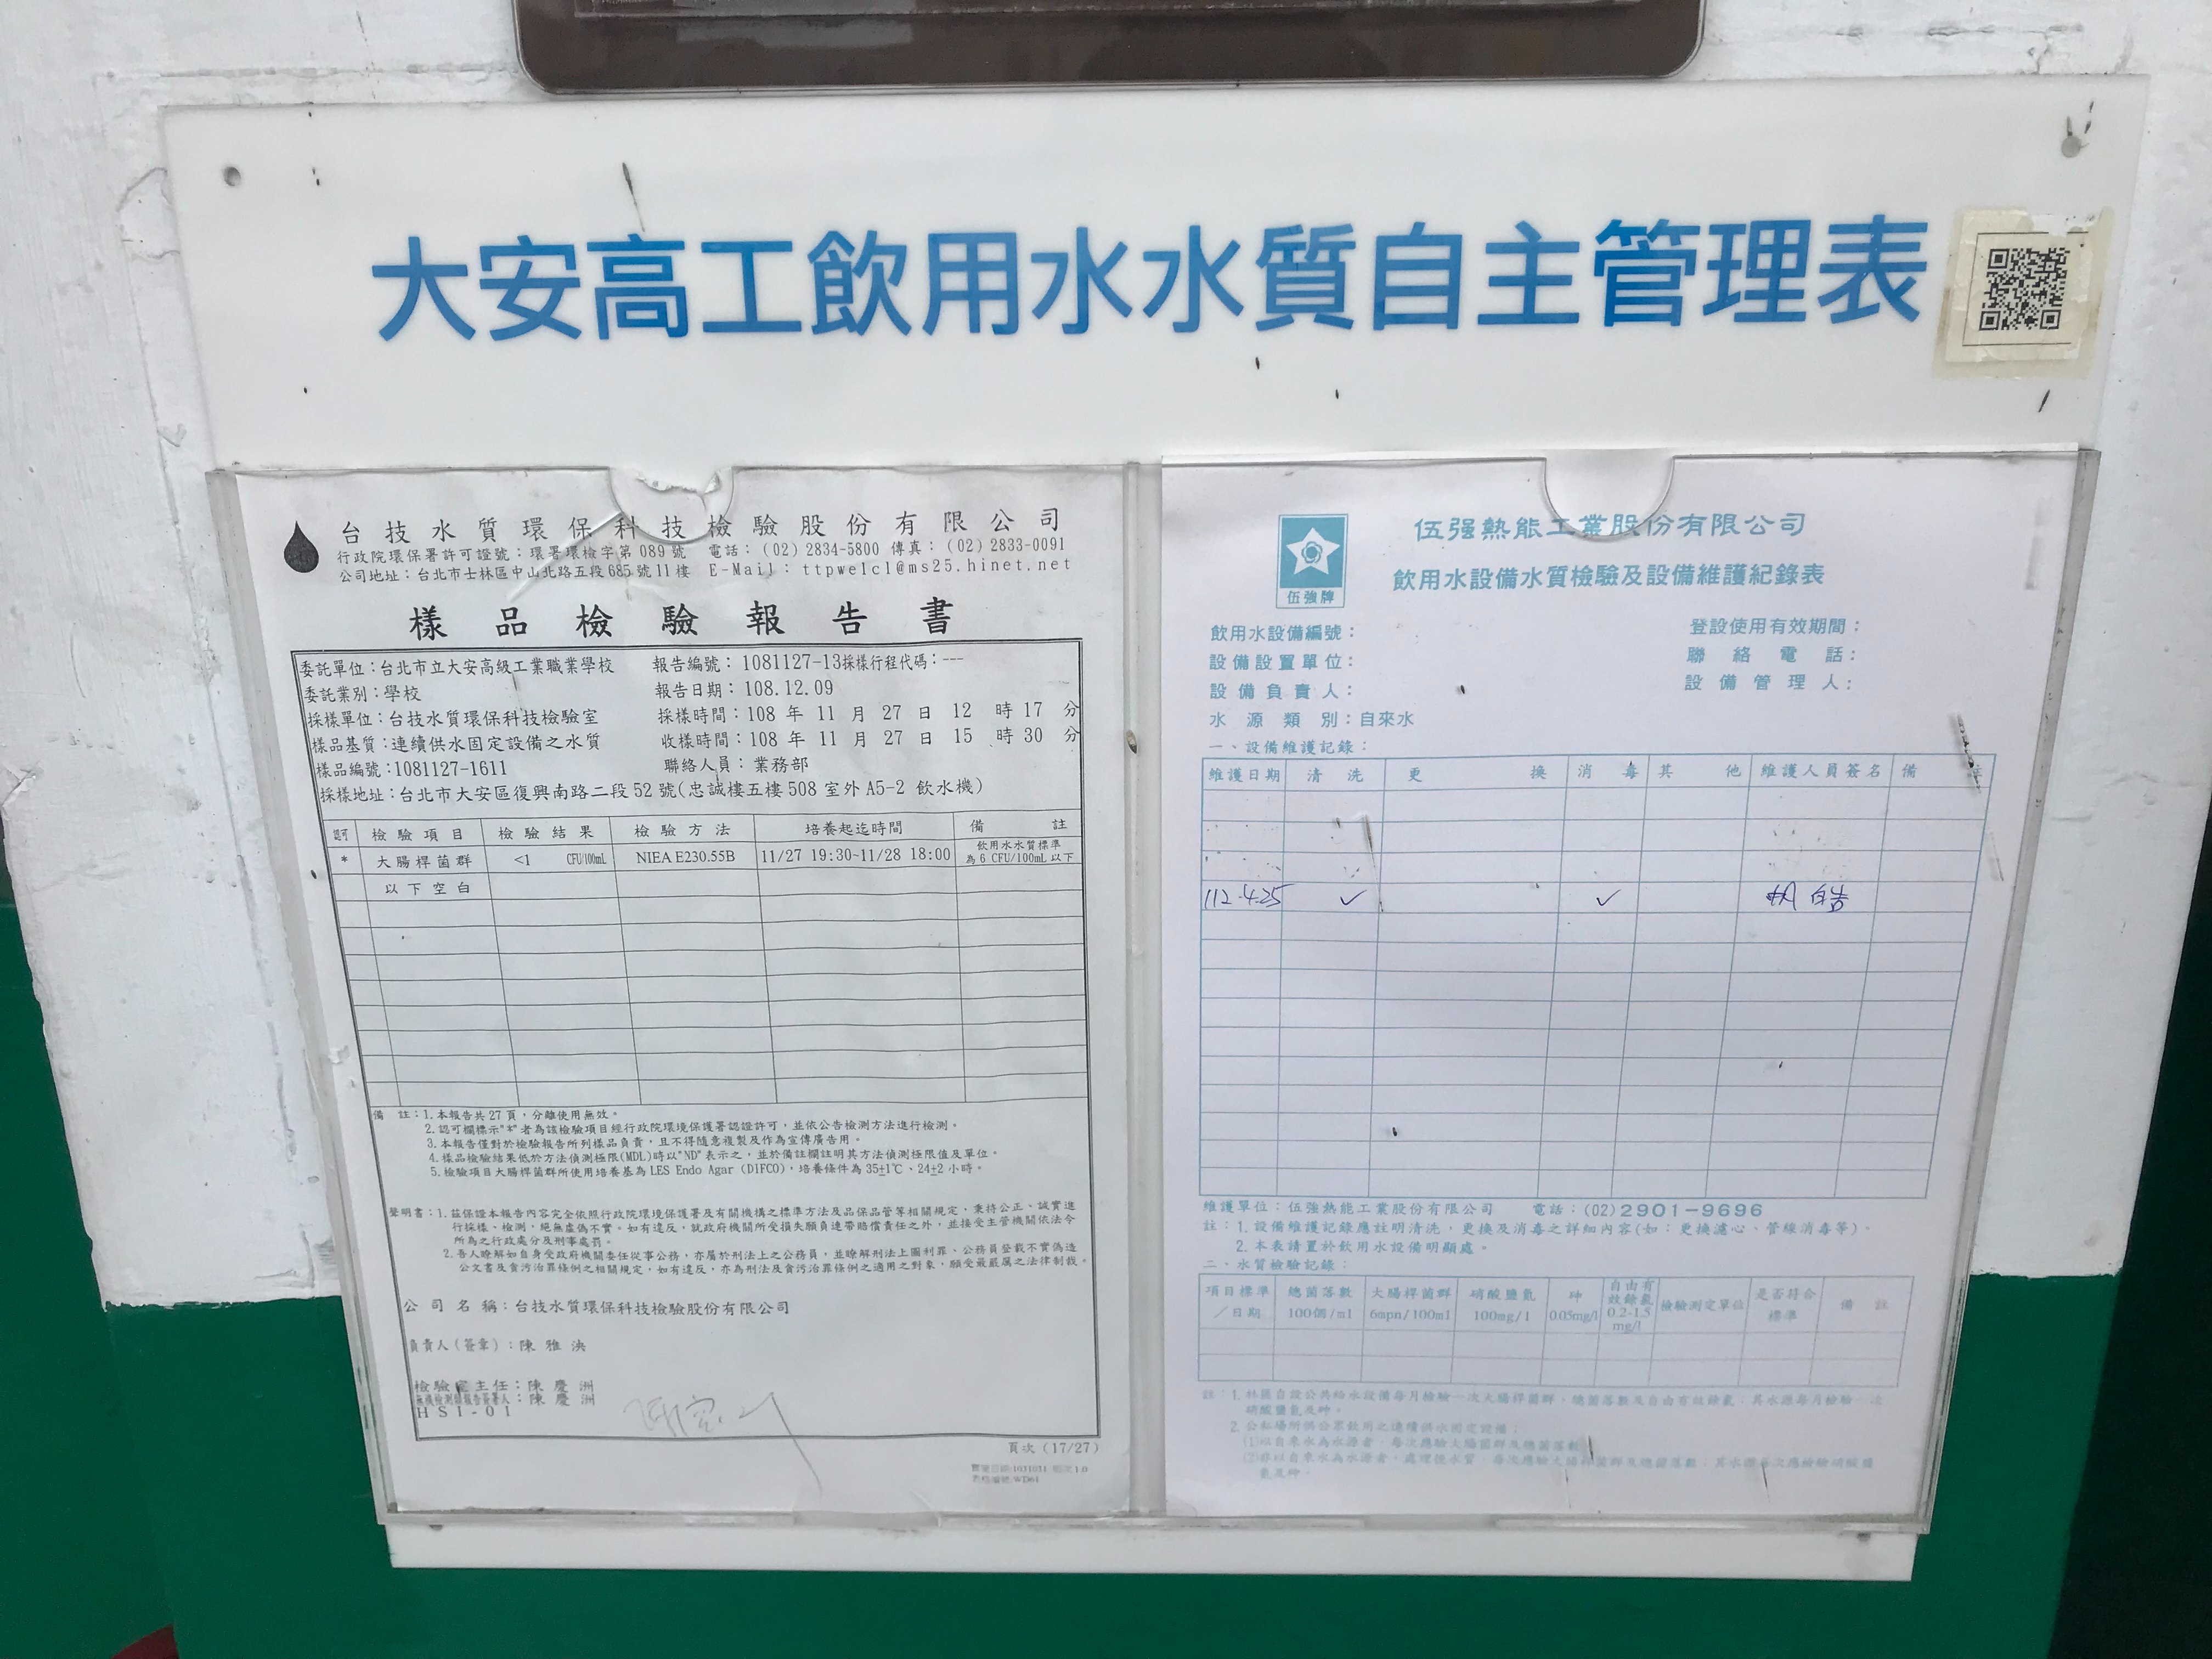 大安高工飲用水水質自主管理表
台技水質環保科技檢驗股份有限公司
行政院環保署許可證號：環署環檢字第089號 電話：(02) 2834-5800 傳真：(02) 2833-0091
公司地址：台北市士林區中山北路五段685號11樓 E-Mail：ttpwelcl@ms25.hinet.net
樣品檢驗報告書
委託單位：台北市立大安高級工業職業學校 報告編號：1081127-13採樣行程代碼：---
委託業別：學校 報告日期：108.12.09
採樣單位：台技水質環保科技檢驗室 採樣時間：108 年 11 月 27 日 12 時 17 分
樣品基質：連續供水固定設備之水質 收樣時間：108 年 11 月 27 日 15 時 30 分
樣品編號：1081127-1611 聯絡人員：業務部
採樣地址：台北市大安區復興南路二段52號(忠誠樓五樓508室外A5-2 飲水機)
認可 檢驗項目 檢驗結果 檢驗方法 培養起迄時間 備註
* 大腸桿菌群 <1 CFU/100mL NIEA E230.55B 11/27 19:30~11/28 18:00 飲用水水質標準為6 CFU/100mL以下
以下空白
備 註：1.本報告共27頁，分離使用無效。
2.認可欄標示"*"者為該檢驗項目經行政院環境保護署認證許可，並依公告檢測方法進行檢測。
3.本報告僅對於檢驗報告所列樣品負責，且不得隨意複製及作為宣傳廣告用。
4.樣品檢驗結果低於方法偵測極限(MDL)時以"ND"表示之，並於備註欄註明其方法偵測極限值及單位。
5.檢驗項目大腸桿菌群所使用培養基為LES Endo Agar (DIFCO)，培養條件為35±1℃、24±2小時。
聲明書：1.茲保證本報告內容完全依照行政院環境保護署及有關機構之標準方法及品保品管等相關規定，秉持公正、誠實進
行採樣、檢測，絕無虛偽不實。如有違反，就政府機關所受損失願負連帶賠償責任之外，並接受主管機關依法令
所為之行政處分及刑事處罰。
2.吾人瞭解如自身受政府機關委任從事公務，亦屬於刑法上之公務員，並瞭解刑法上圖利罪、公務員登載不實偽造
公文書及貪污治罪條例之相關規定，如有違反，亦為刑法及貪污治罪條例之適用之對象，願受最嚴厲之法律制裁。
公司名稱：台技水質環保科技檢驗股份有限公司
負責人(簽章)：陳雅泱
檢驗室主任：陳慶洲
無機檢測類報告簽署人：陳慶洲
HSI-01
頁次 (17/27)
實施日期:1031031 版次:1.0
表格編號:WD61
伍強牌
伍强熱能工業股份有限公司
飲用水設備水質檢驗及設備維護紀錄表
飲用水設備編號： 登設使用有效期間：
設備設置單位： 聯絡電話：
設備負責人： 設備管理人：
水源類別：自來水
一、設備維護記錄：
維護日期 清洗 更換 消毒 其他 維護人員簽名 備註
112.4.25 ✓ ✓
維護單位：伍強熱能工業股份有限公司 電話：(02)2901-9696
註：1.設備維護記錄應註明清洗，更換及消毒之詳細內容(如：更換濾心、管線消毒等)。
2.本表請置於飲用水設備明顯處。
二、水質檢驗記錄：
項目標準／日期 總菌落數100個/ml 大腸桿菌群6mpn/100ml 硝酸鹽氮100mg/l 砷0.05mg/l 自由有效餘氯0.2-1.5mg/l 檢驗測定單位 是否符合標準 備註
註：1.社區自設公共給水設備每月檢驗一次大腸桿菌群，總菌落數及自由有效餘氯；其水源每月檢驗一次
硝酸鹽氮及砷。
2.公私場所供公眾飲用之連續供水固定設備：
(1)以自來水為水源者，每次應驗大腸菌群及總菌落數
(2)非以自來水為水源者，處理後水質，每次應驗大腸桿菌群及總菌落數；其水源每次應檢驗硝酸鹽
氮及砷。